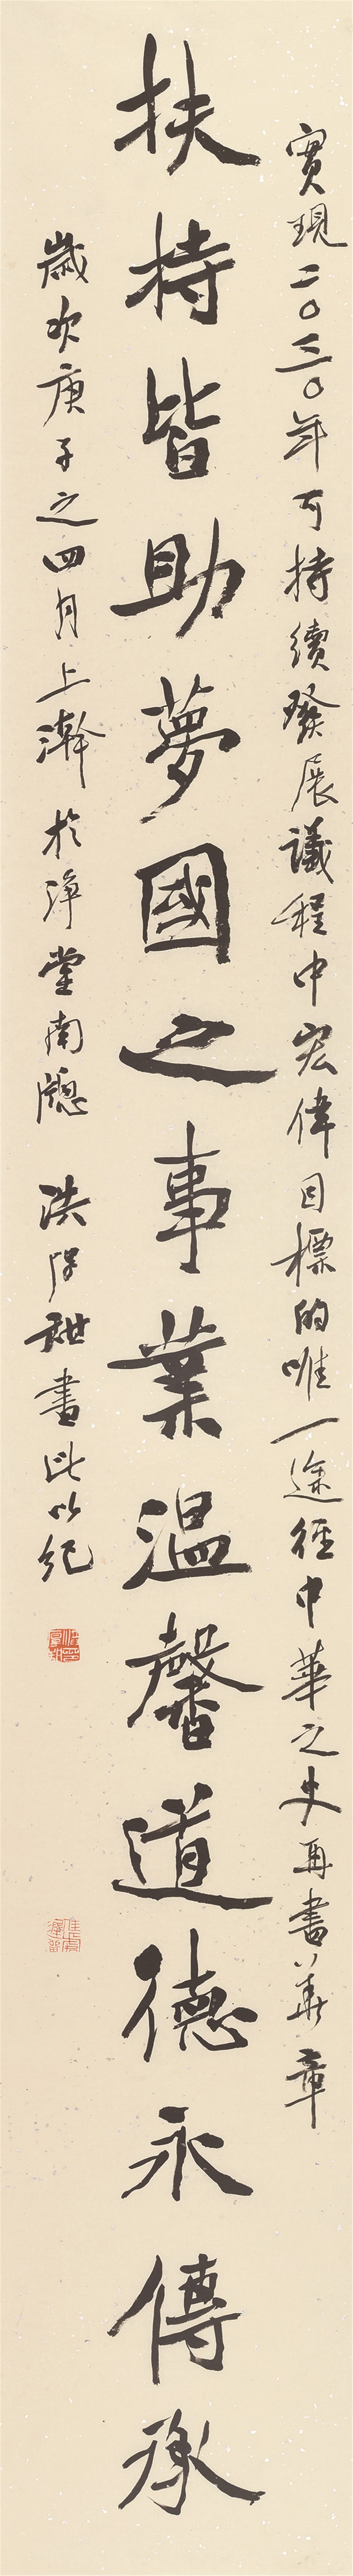 實現二〇三〇年可持續發展議程中宏偉目標的唯一途徑中華之史再書華章
扶持皆助夢國之事業溫馨道德永傳承
歲次庚子之四月上澣於淨堂南窗 洪厚甜書此以紀